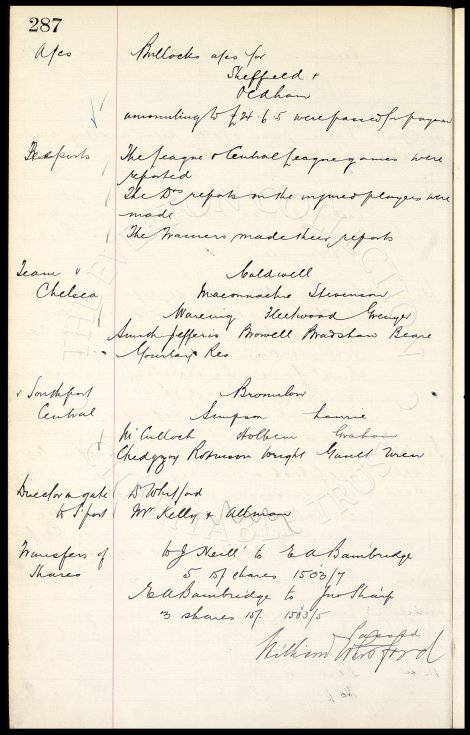 287
A/cs Bullocks a/cs for
Sheffield &
Oldham
amounting to £24 6 5 were passed for payment
Reports The League & Central League games were
reported
The Drs reports on the injured players were
made
The Trainers made their reports
Team v Caldwell
Chelsea Maconnachie Stevenson
Wareing Fleetwood Grenyer
Smith Jefferis Browell Bradshaw Beare
Mountain Res
v Southport Bromilow
Central Simpson Laurie
McCulloch Holbem Graham
Chedgzoy Robinson Wright Gault Uren
Director on gate Dr Whitford
to S'port Mr Kelly & Allman
Transfers of W J Neill to E A Bainbridge
Shares 5 Of shares 1503/7
E A Bainbridge to Jno Sharp
3 shares 1503/5
Passed
William Whitford